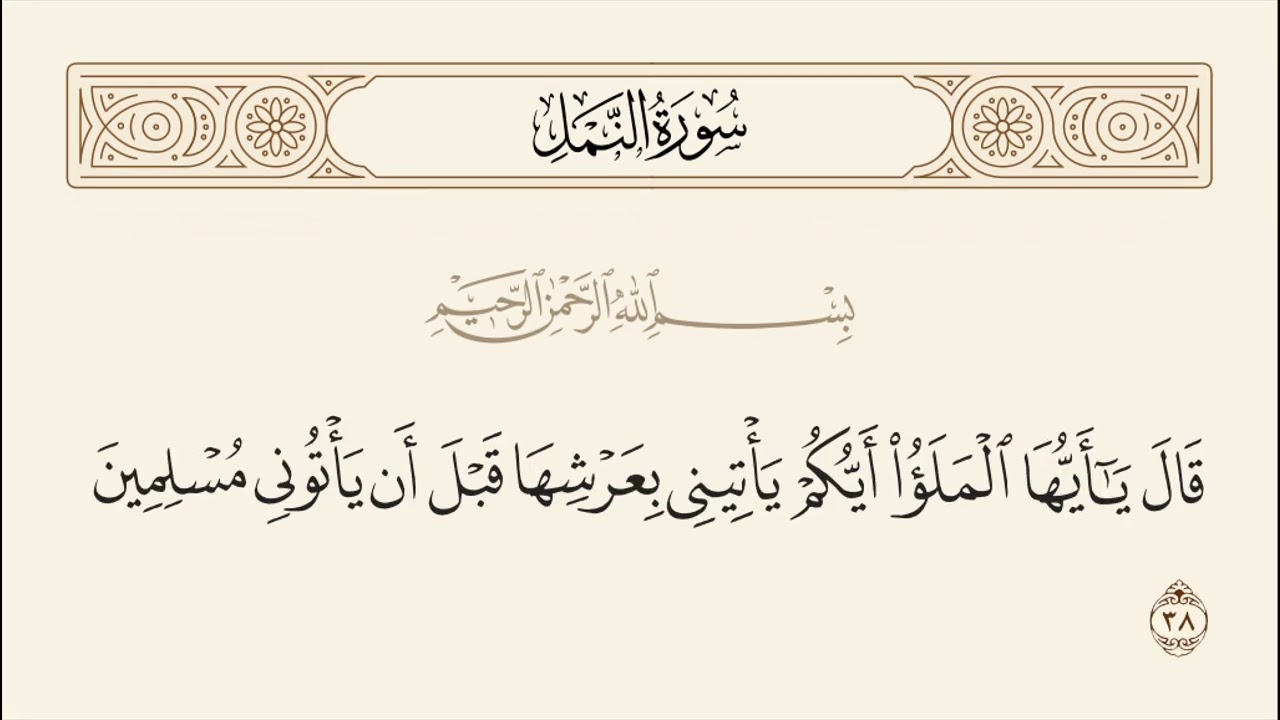 سُورَةُ النَّمْلِ
بِسْمِ ٱللَّهِ ٱلرَّحْمَٰنِ ٱلرَّحِيمِ
قَالَ يَـٰٓأَيُّهَا ٱلْمَلَؤُا۟ أَيُّكُمْ يَأْتِينِى بِعَرْشِهَا قَبْلَ أَن يَأْتُونِى مُسْلِمِينَ
٣٨